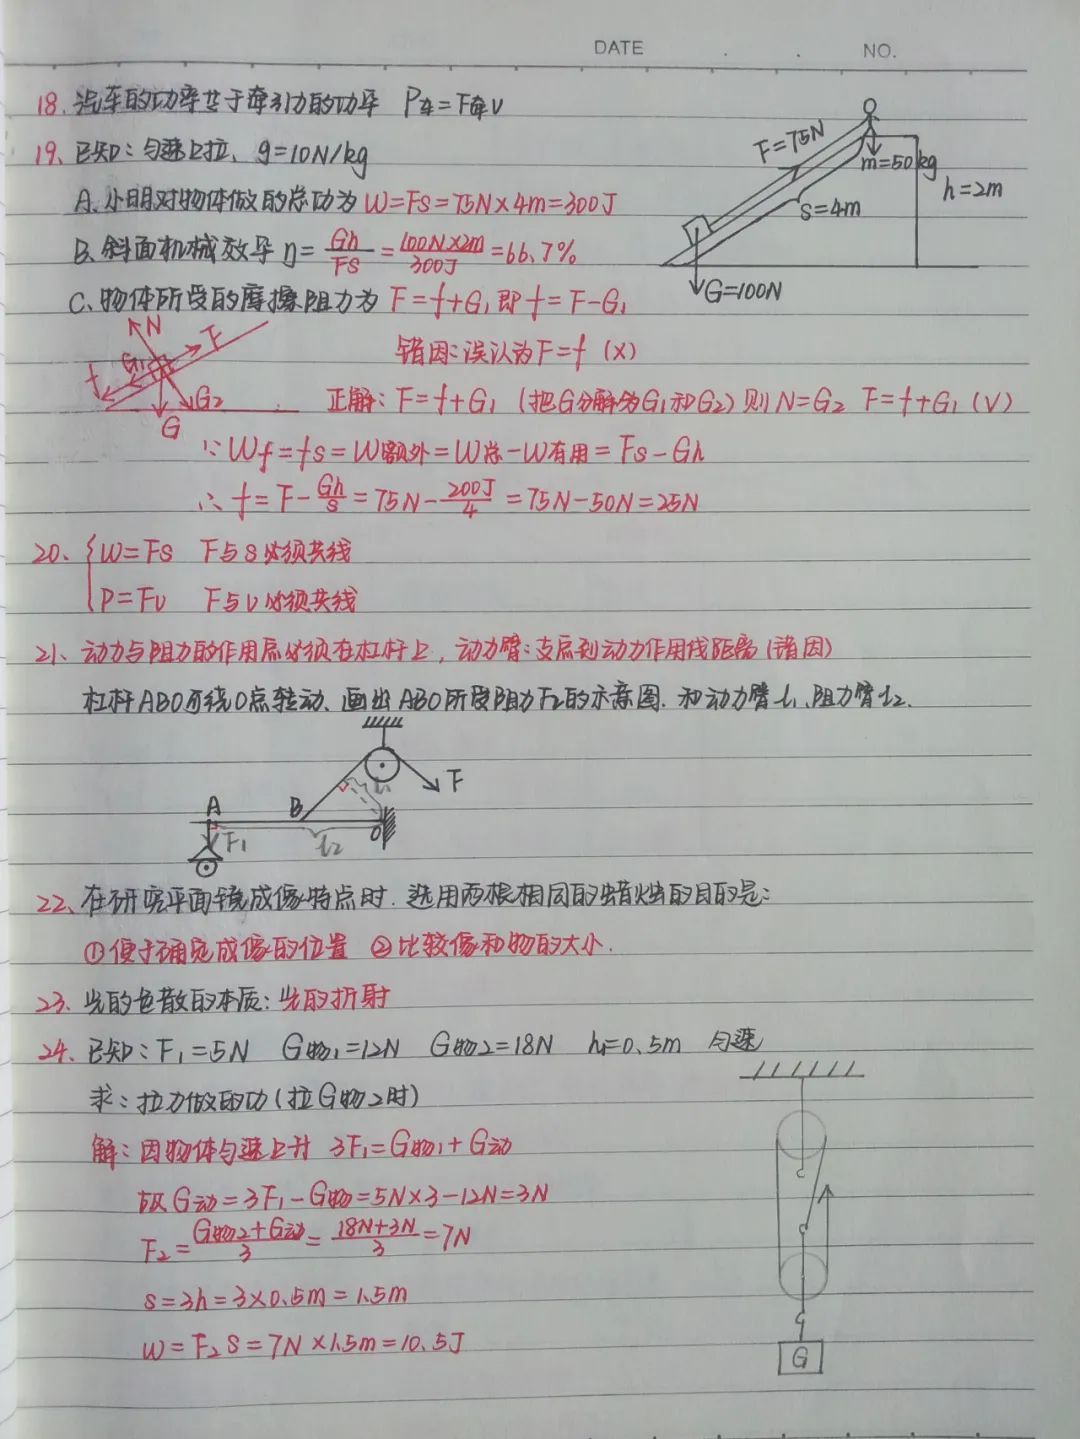 DATE . . NO.
18、汽车的功率等于牵引力的功率 P车=F牵v
19、已知:匀速上拉、g=10N/kg
F=75N
m=50kg
h=2m
s=4m
G=100N
A、小明对物体做的总功为 W=Fs=75N×4m=300J
B、斜面机械效率η=Gh/Fs=100N×2m/300J=66.7%
C、物体所受的摩擦阻力为 F=f+G₁即f=F-G₁
N
F
G₁
f
G₂
G
错因:误认为F=f (×)
正解:F=f+G₁ (把G分解为G₁和G₂)则N=G₂ F=f+G₁ (√)
∵Wf=fs=W额外=W总-W有用=Fs-Gh
∴f=F-Gh/s=75N-200J/4=75N-50N=25N
20、{W=Fs F与s必须共线
P=Fv F与v必须共线
21、动力与阻力的作用点必须在杠杆上,动力臂:支点到动力作用线距离(错因)
杠杆ABO可绕O点转动、画出ABO所受阻力F₂的示意图.和动力臂l₁、阻力臂l₂.
F
l₁
A
B
O
F₁
l₂
22、在研究平面镜成像特点时.选用两根相同的蜡烛的目的是:
①便于确定成像的位置 ②比较像和物的大小.
23、光的色散的本质:光的折射
24、已知:F₁=5N G物₁=12N G物2=18N h=0.5m 匀速
求:拉力做的功(拉G物2时)
解:因物体匀速上升 3F₁=G物₁+G动
故G动=3F₁-G物=5N×3-12N=3N
F₂=G物2+G动/3=18N+3N/3=7N
s=3h=3×0.5m=1.5m
W=F₂s=7N×1.5m=10.5J
G